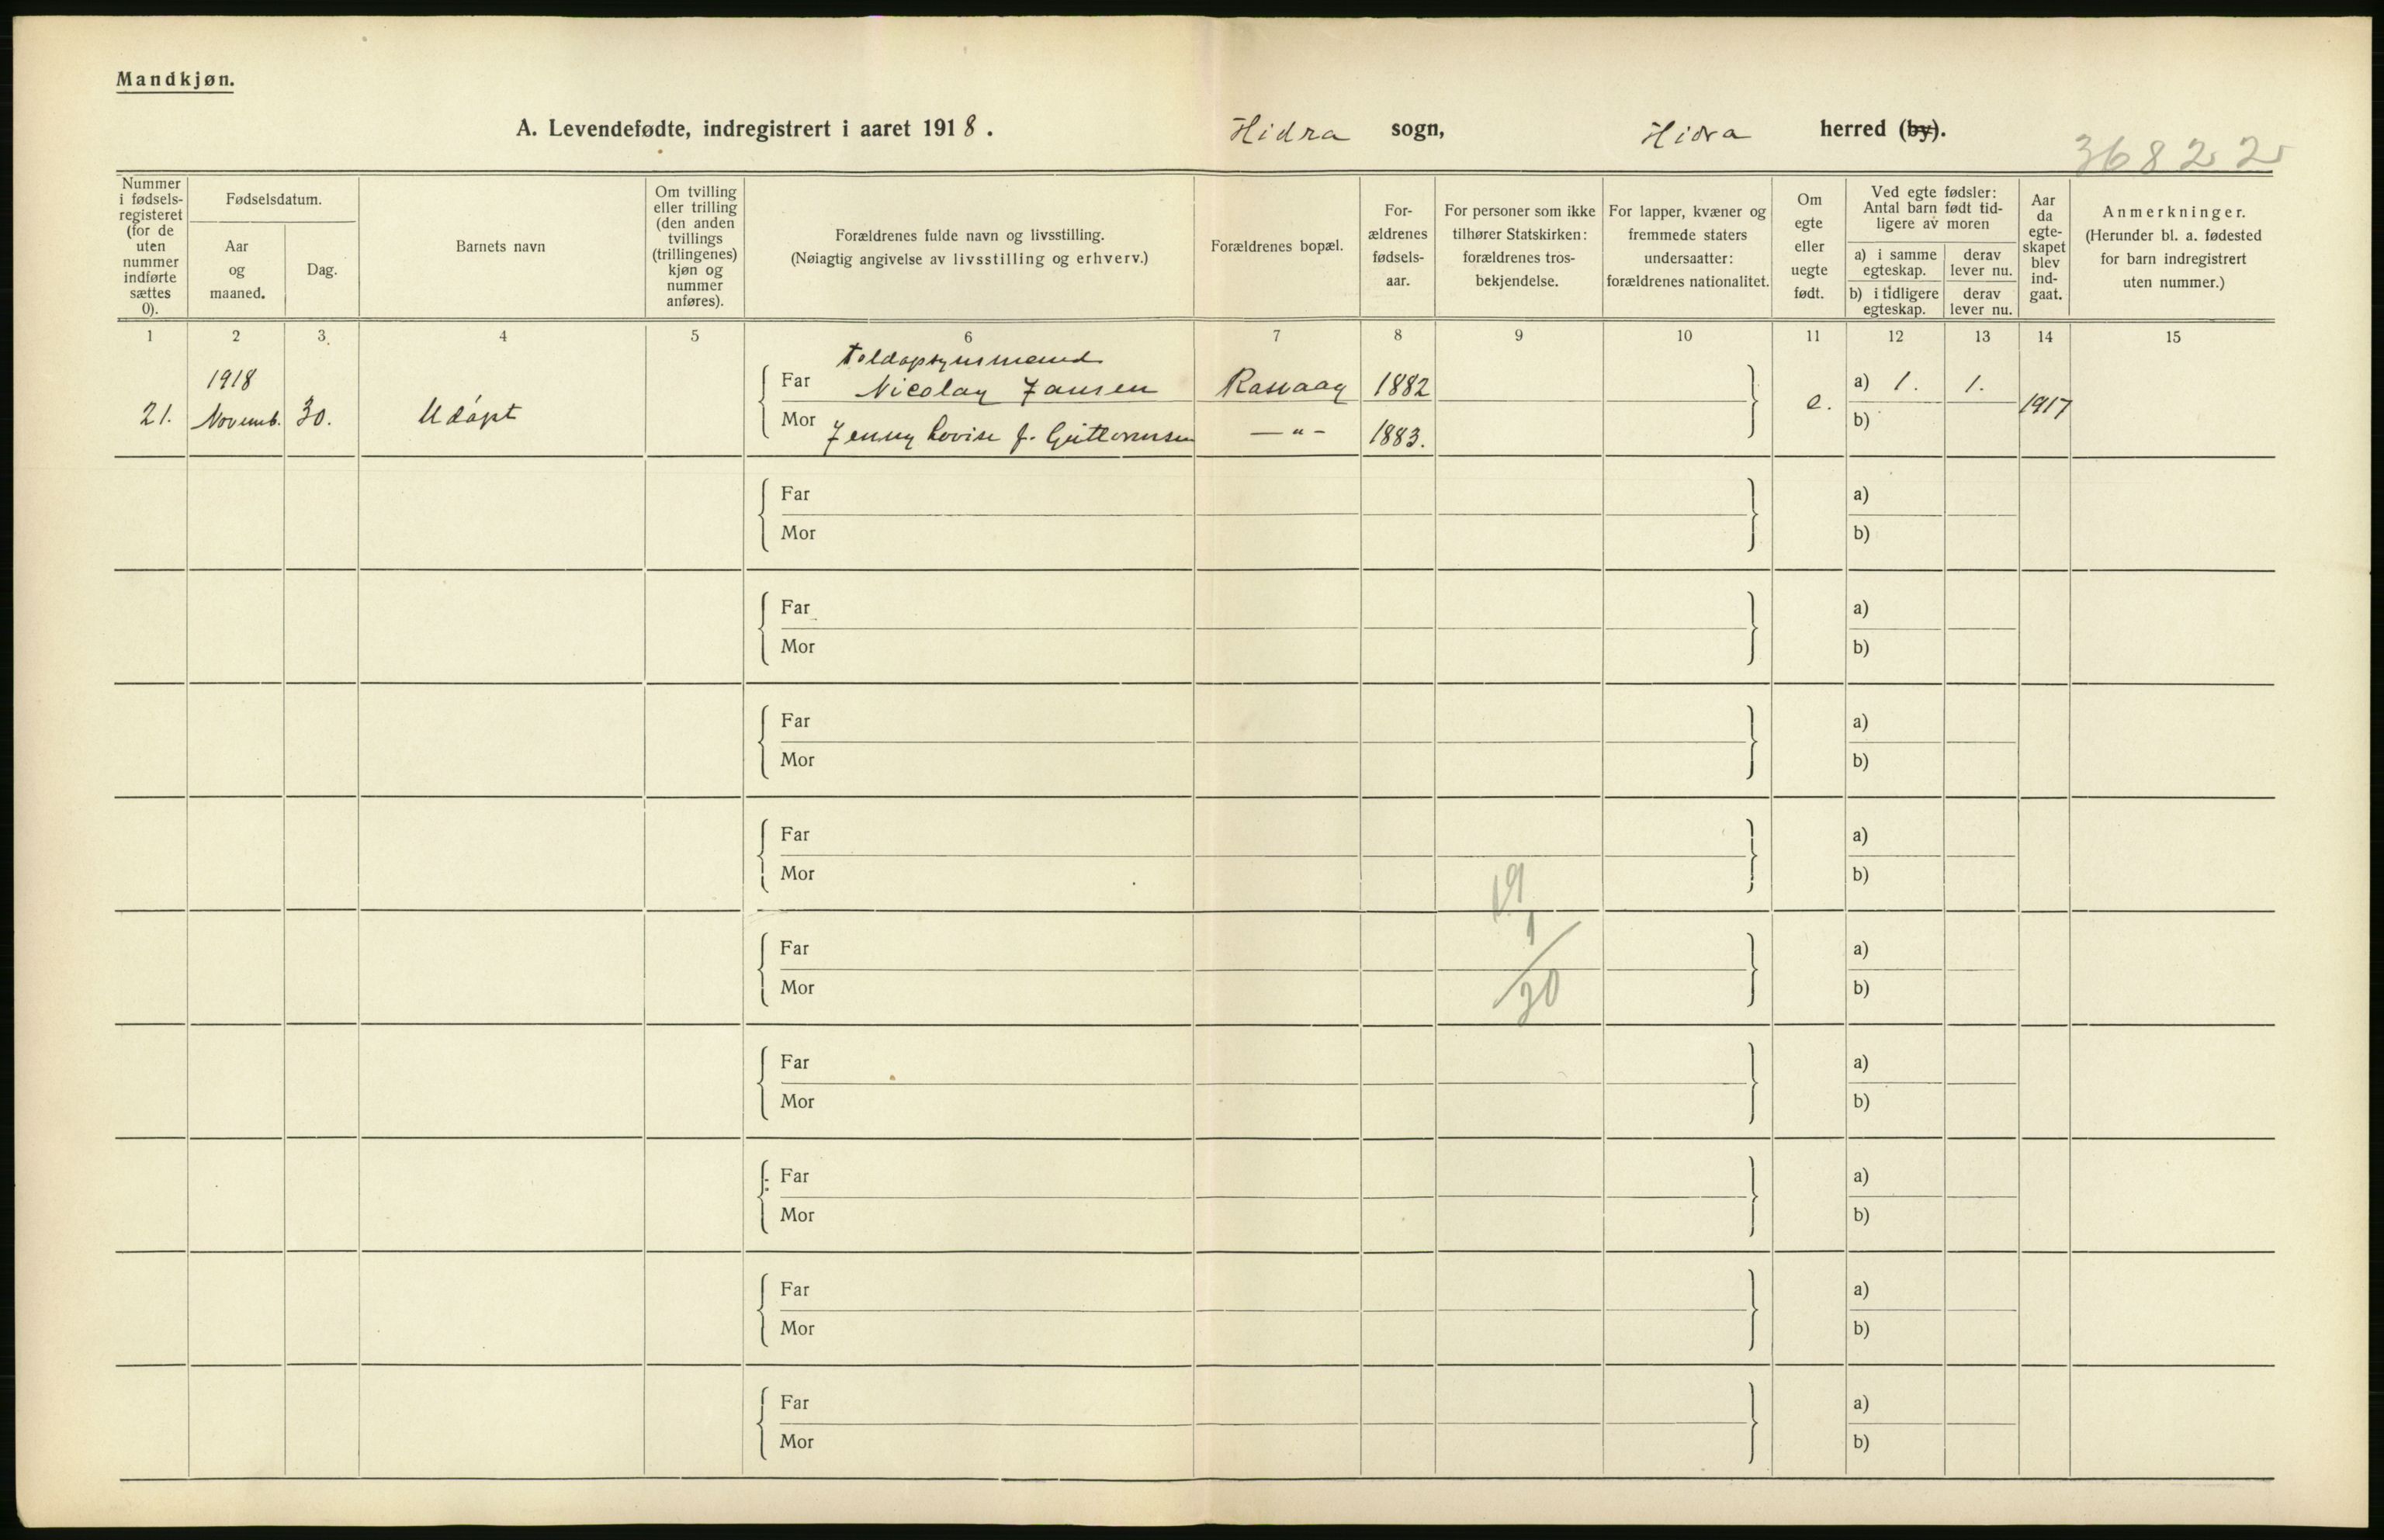 Mandkjøn.
A. Levendefødte, indregistrert i aaret 1918. Hidra sogn, Hidra herred (by).
36822
Nummer i fødsels-registeret (for de uten nummer indførte sættes 0).
Fødselsdatum.
Aar og maaned.
Dag.
Barnets navn
Om tvilling eller trilling (den anden tvillings (trillingenes) kjøn og nummer anføres).
Forældrenes fulde navn og livsstilling.
(Nøiagtig angivelse av livsstilling og erhverv.)
Forældrenes bopæl.
For-ældrenes fødsels-aar.
For personer som ikke tilhører Statskirken: forældrenes tros-bekjendelse.
For lapper, kvæner og fremmede staters undersaatter: forældrenes nationalitet.
Om egte eller uegte født.
Ved egte fødsler: Antal barn født tid-ligere av moren
a) i samme egteskap.
derav lever nu.
b) i tidligere egteskap.
derav lever nu.
Aar da egte-skapet blev ind-gaat.
Anmerkninger.
(Herunder bl. a. fødested for barn indregistrert uten nummer.)
1 2 3. 4 5 6 7 8 9 10 11 12 13 14 15
Toldopsynsmand
1918 Far Nicolay Jansen Rasvaag 1882 a) 1. 1.
21. Novemb. 30. Udøpt e. 1917
Mor Jenny Lovise f. Guttormsen — " - 1883. b)
Far a)
Mor b)
Far a)
Mor b)
Far a)
Mor b)
Far a)
Mor b)
19
1
Far a)
Mor b)
20
Far a)
Mor b)
Far a)
Mor b)
Far a)
Mor b)
Far a)
Mor b)